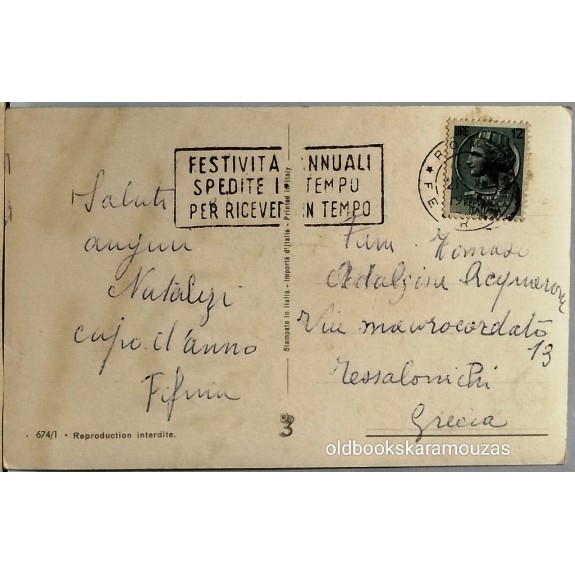 FESTIVITÀ ANNUALI
SPEDITE IN TEMPO
PER RICEVERE IN TEMPO
LIRE 12
Saluti
auguri
Natalizi
capo d'anno
Stampato in Italia - Importé d'Italie - Printed in Italy
Tomaso
Adalgisa Acquarone
Via Maurocordato
13
Tessalonichi
Grecia
674/1 • Reproduction interdite.
3
oldbookskaramouzas